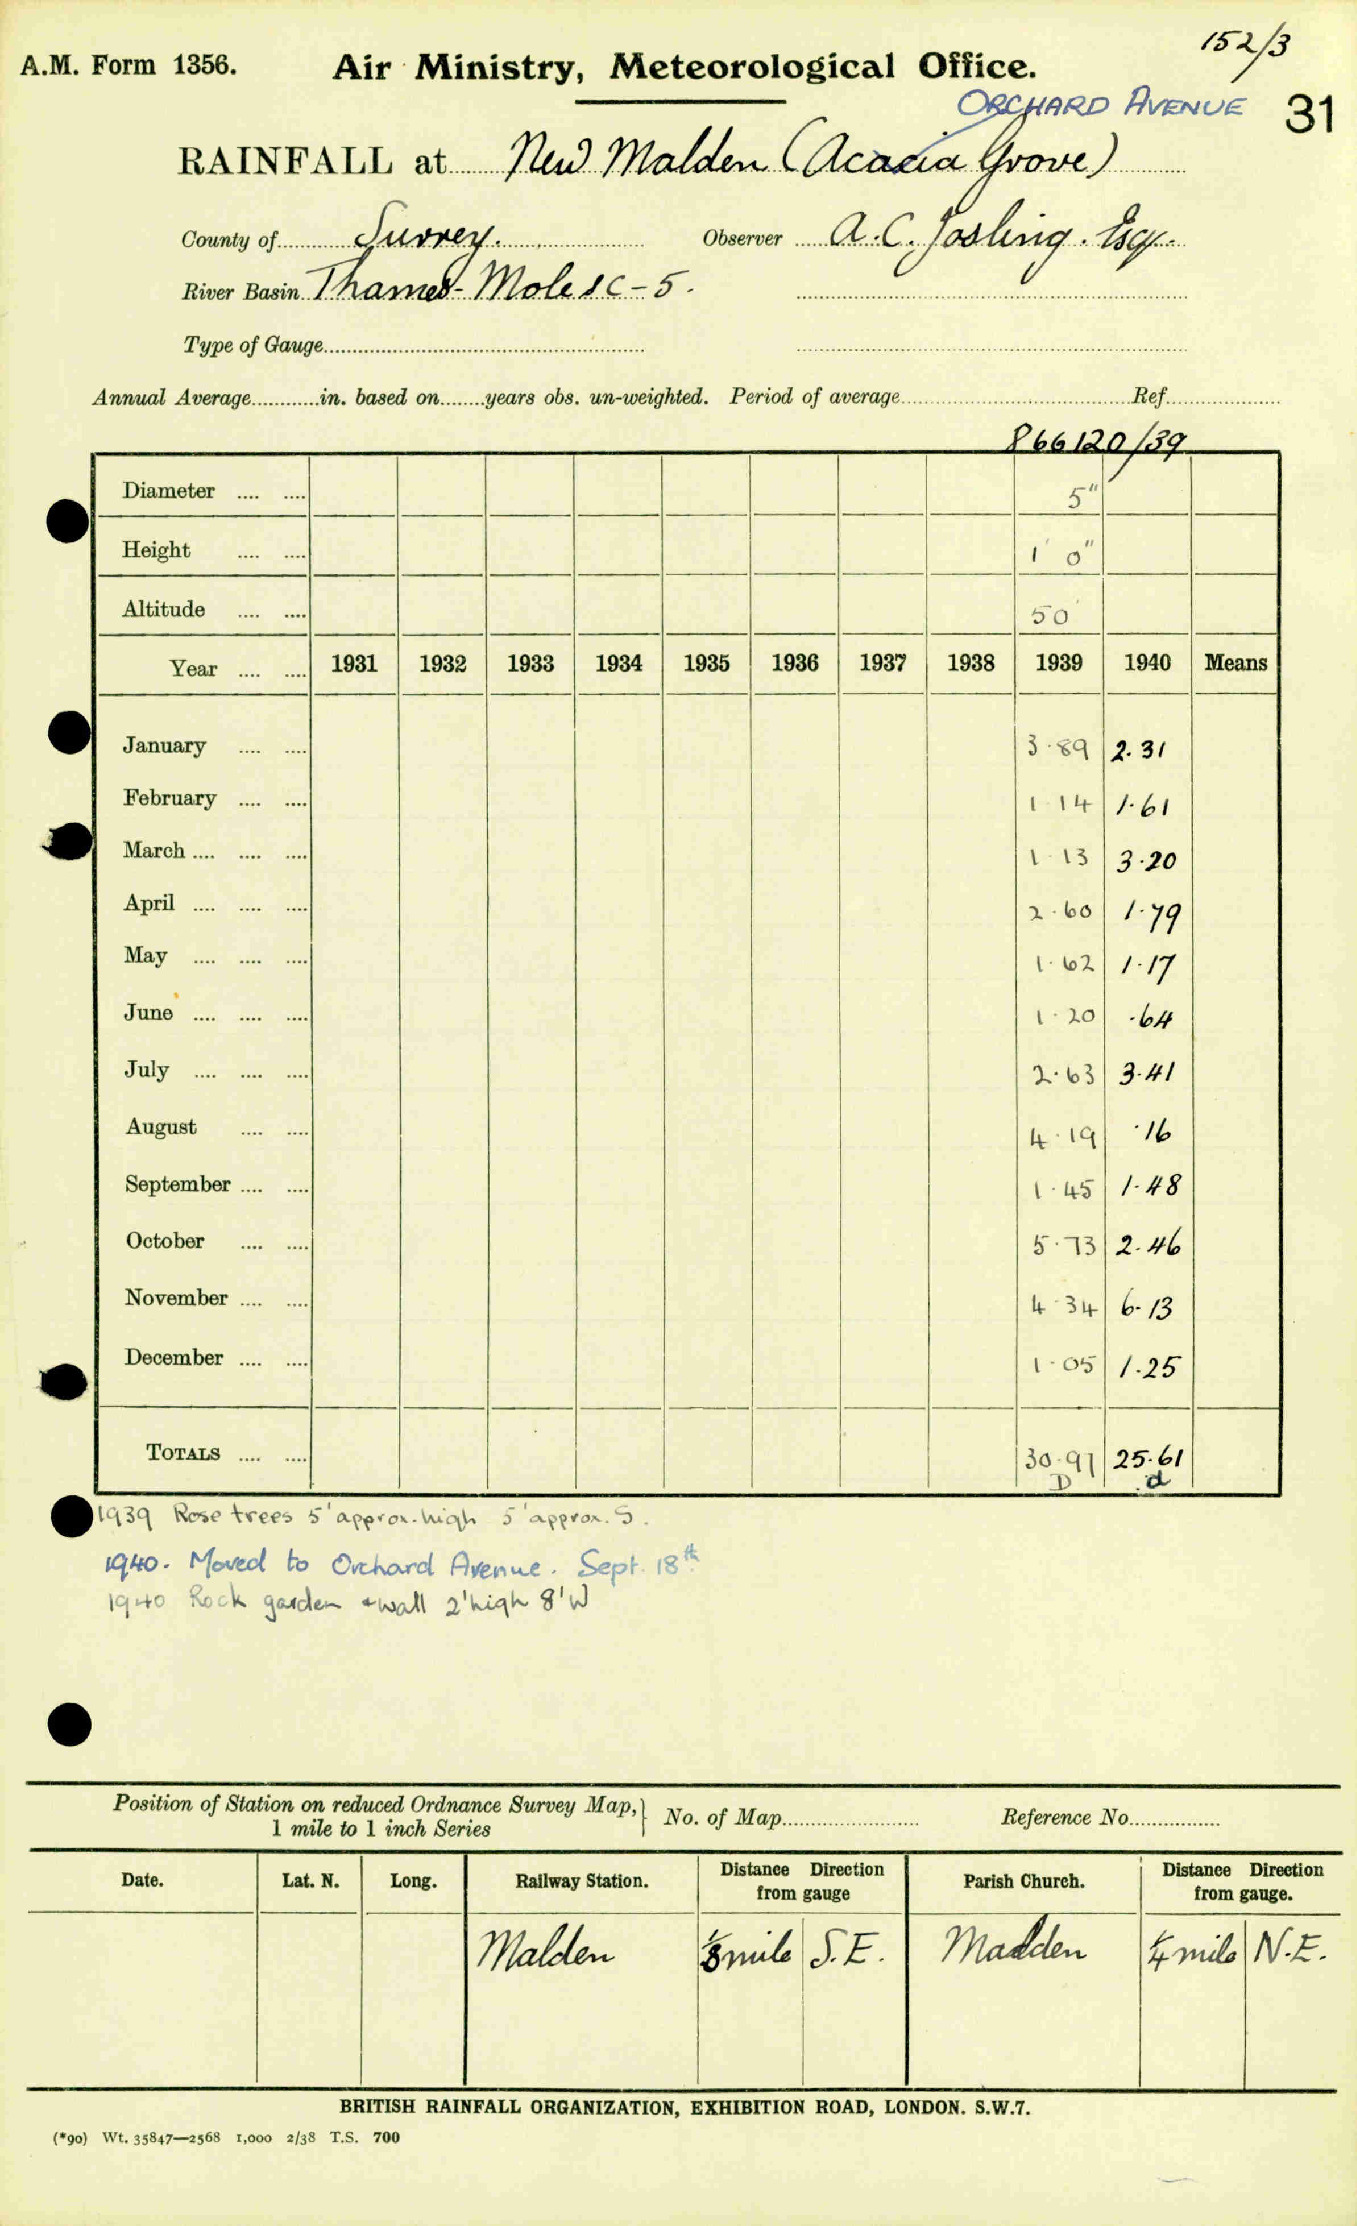 152/3
A.M. Form 1356. Air Ministry, Meteorological Office.
ORCHARD AVENUE 31
RAINFALL at New Malden (Acacia Grove)
County of Surrey. Observer A.C. Josling. Esq.
River Basin Thames - Mole SC - 5.
Type of Gauge
Annual Average in. based on years obs. un-weighted. Period of average Ref.
866120/39
Diameter .... .... 5"
Height .... .... 1' 0"
Altitude .... .... 50'
Year .... .... 1931 1932 1933 1934 1935 1936 1937 1938 1939 1940 Means
January .... .... 3.89 2.31
February .... .... 1.14 1.61
March .... .... .... 1.13 3.20
April .... .... .... 2.60 1.79
May .... .... .... 1.62 1.17
June .... .... .... 1.20 .64
July .... .... .... 2.63 3.41
August .... .... 4.19 .16
September .... .... 1.45 1.48
October .... .... 5.73 2.46
November .... .... 4.34 6.13
December .... .... 1.05 1.25
TOTALS .... .... 30.97 25.61
D d
1939 Rose trees 5' approx. high 5' approx. S.
1940. Moved to Orchard Avenue. Sept. 18th.
1940 Rock garden + wall 2' high 8' W
Position of Station on reduced Ordnance Survey Map, } No. of Map Reference No.
1 mile to 1 inch Series
Date. Lat. N. Long. Railway Station. Distance Direction from gauge Parish Church. Distance Direction from gauge.
Malden 1/3 mile S.E. Malden 1/4 mile N.E.
BRITISH RAINFALL ORGANIZATION, EXHIBITION ROAD, LONDON. S.W.7.
(*90) Wt. 35847—2568 1,000 2/38 T.S. 700